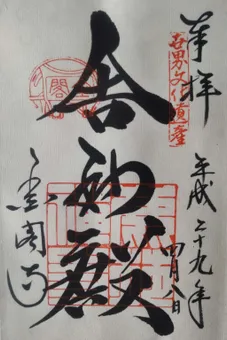 奉拝
世界文化遺産
平成二十九年
四月八日
舎利殿
金閣寺